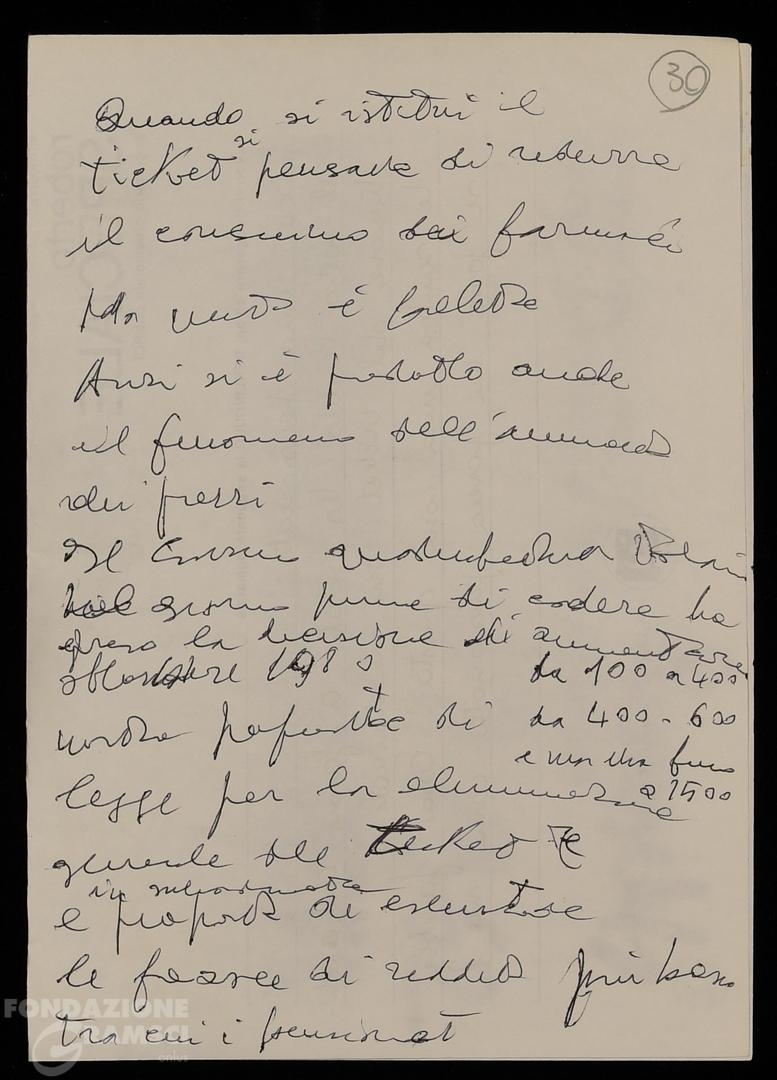 30
Quando si istituì il
ticket si pensava di ridurre
il consumo dei farmaci
Ma questo è fallito
Anzi si è prodotto anche
il fenomeno dell'aumento
dei prezzi
Il Governo quadripartito
giorno prima di cadere ha
preso la decisione di aumentare
ottobre 1980 da 100 a 400
nostra proposta di da 400 - 600
e fino
legge per la eliminazione a 1500
generale del ticket
in subordinata
e proposta di esentare
le fasce di reddito più basse
tra cui i pensionati
FONDAZIONE
GRAMSCI
onlus